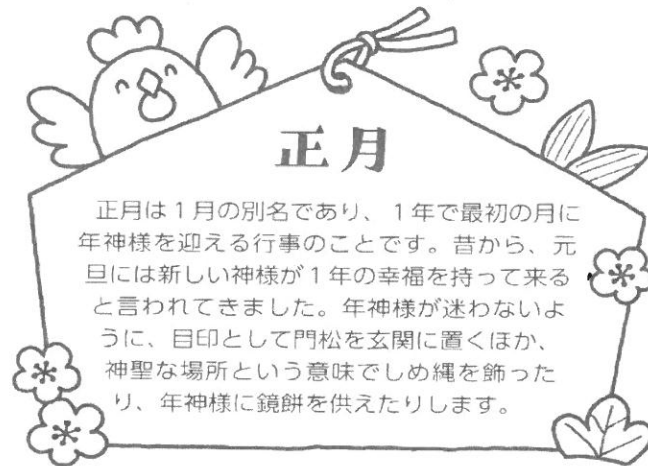 正月
正月は1月の別名であり、1年で最初の月に
年神様を迎える行事のことです。昔から、元
旦には新しい神様が1年の幸福を持って来る
と言われてきました。年神様が迷わないよ
うに、目印として門松を玄関に置くほか、
神聖な場所という意味でしめ縄を飾った
り、年神様に鏡餅を供えたりします。